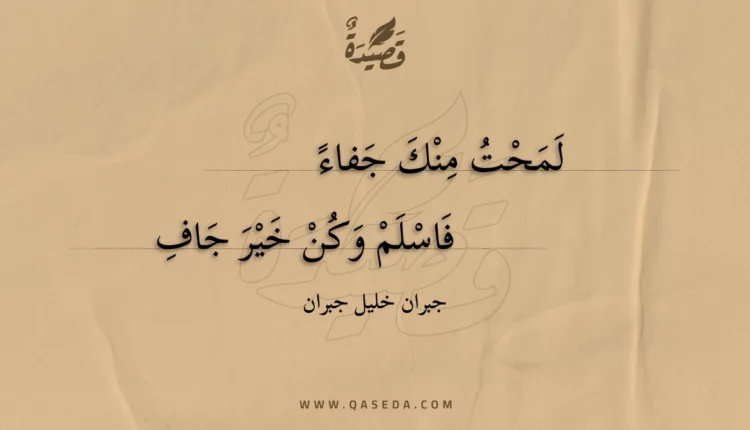 قَصِيدَةٌ
لَمَحْتُ مِنْكَ جَفاءً
فَاسْلَمْ وَكُنْ خَيْرَ جَافِ
جبران خليل جبران
WWW.QASEDA.COM